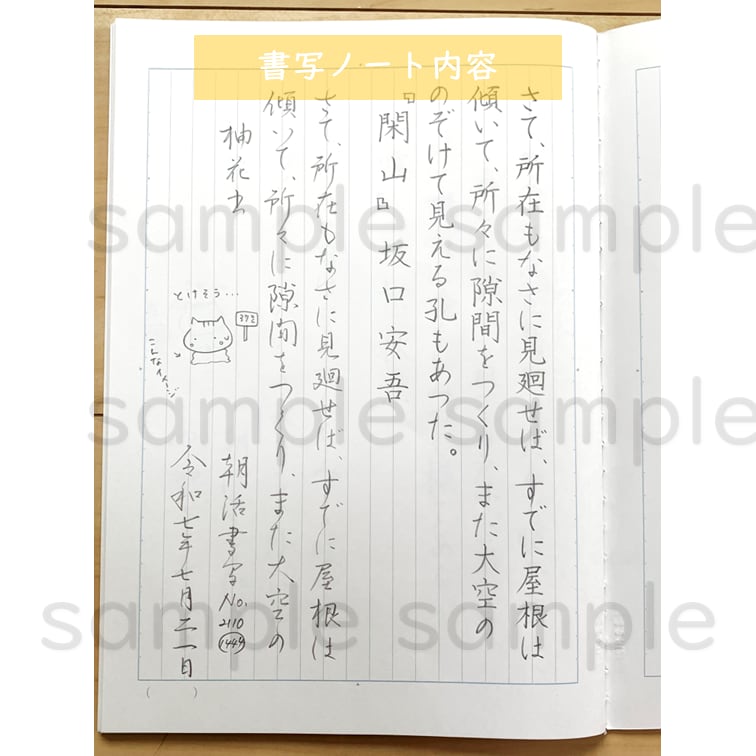 書写ノート内容
さて、所在もなさに見廻せば、すでに屋根は
傾いて、所々に隙間をつくり、また大空の
のぞけて見える孔もあつた。
『閑山』坂口安吾
さて、所在もなさに見廻せば、すでに屋根は
傾いて、所々に隙間をつくり、また大空の
柚花
とけそう…
こんなイメージ
朝活書写No.
2110
1449
令和七年七月二一日
sample sample
sample sample
sample sample
sample sample